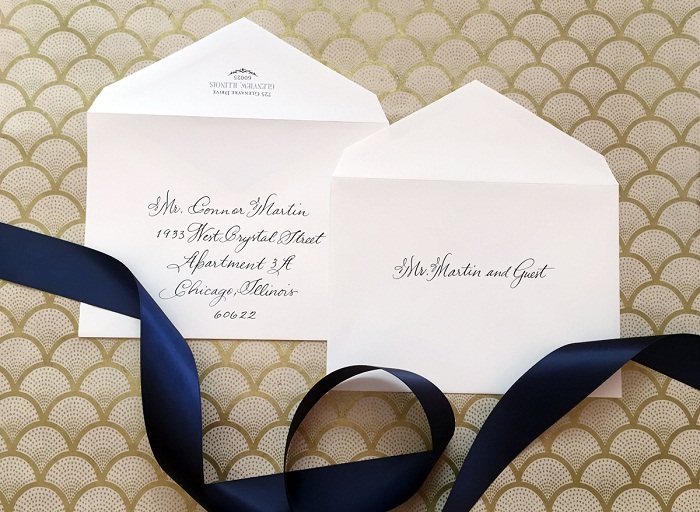 725 Glenvre Drive
Glenview, Illinois
60025
Mr. Connor Martin
1933 West Crystal Street
Apartment 3A
Chicago, Illinois
60622
Mr. Martin and Guest